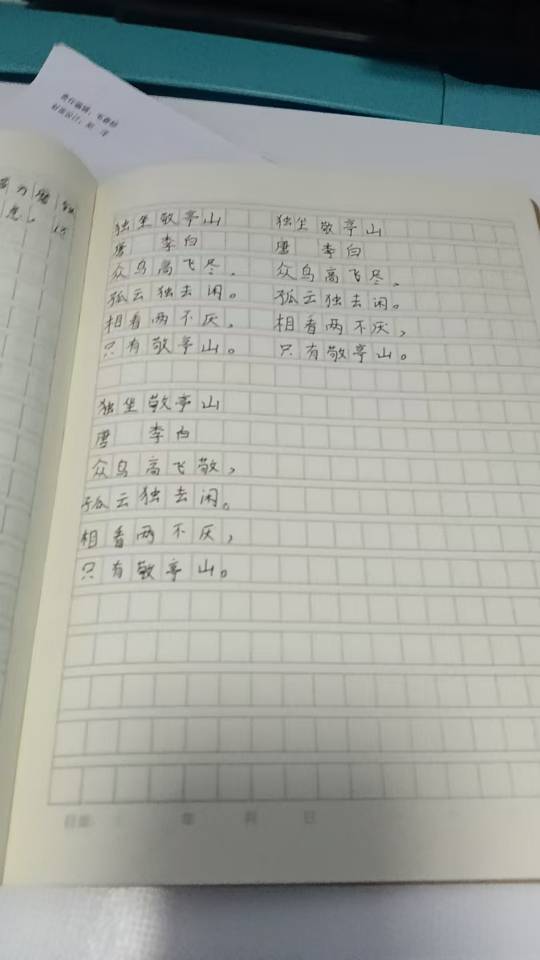 独坐敬亭山
唐 李白
众鸟高飞尽，
孤云独去闲。
相看两不厌，
只有敬亭山。
独坐敬亭山
唐 李白
众鸟高飞尽。
孤云独去闲。
相看两不厌，
只有敬亭山。
独坐敬亭山
唐 李白
众鸟高飞敬，
孤云独去闲。
相看两不厌，
只有敬亭山。